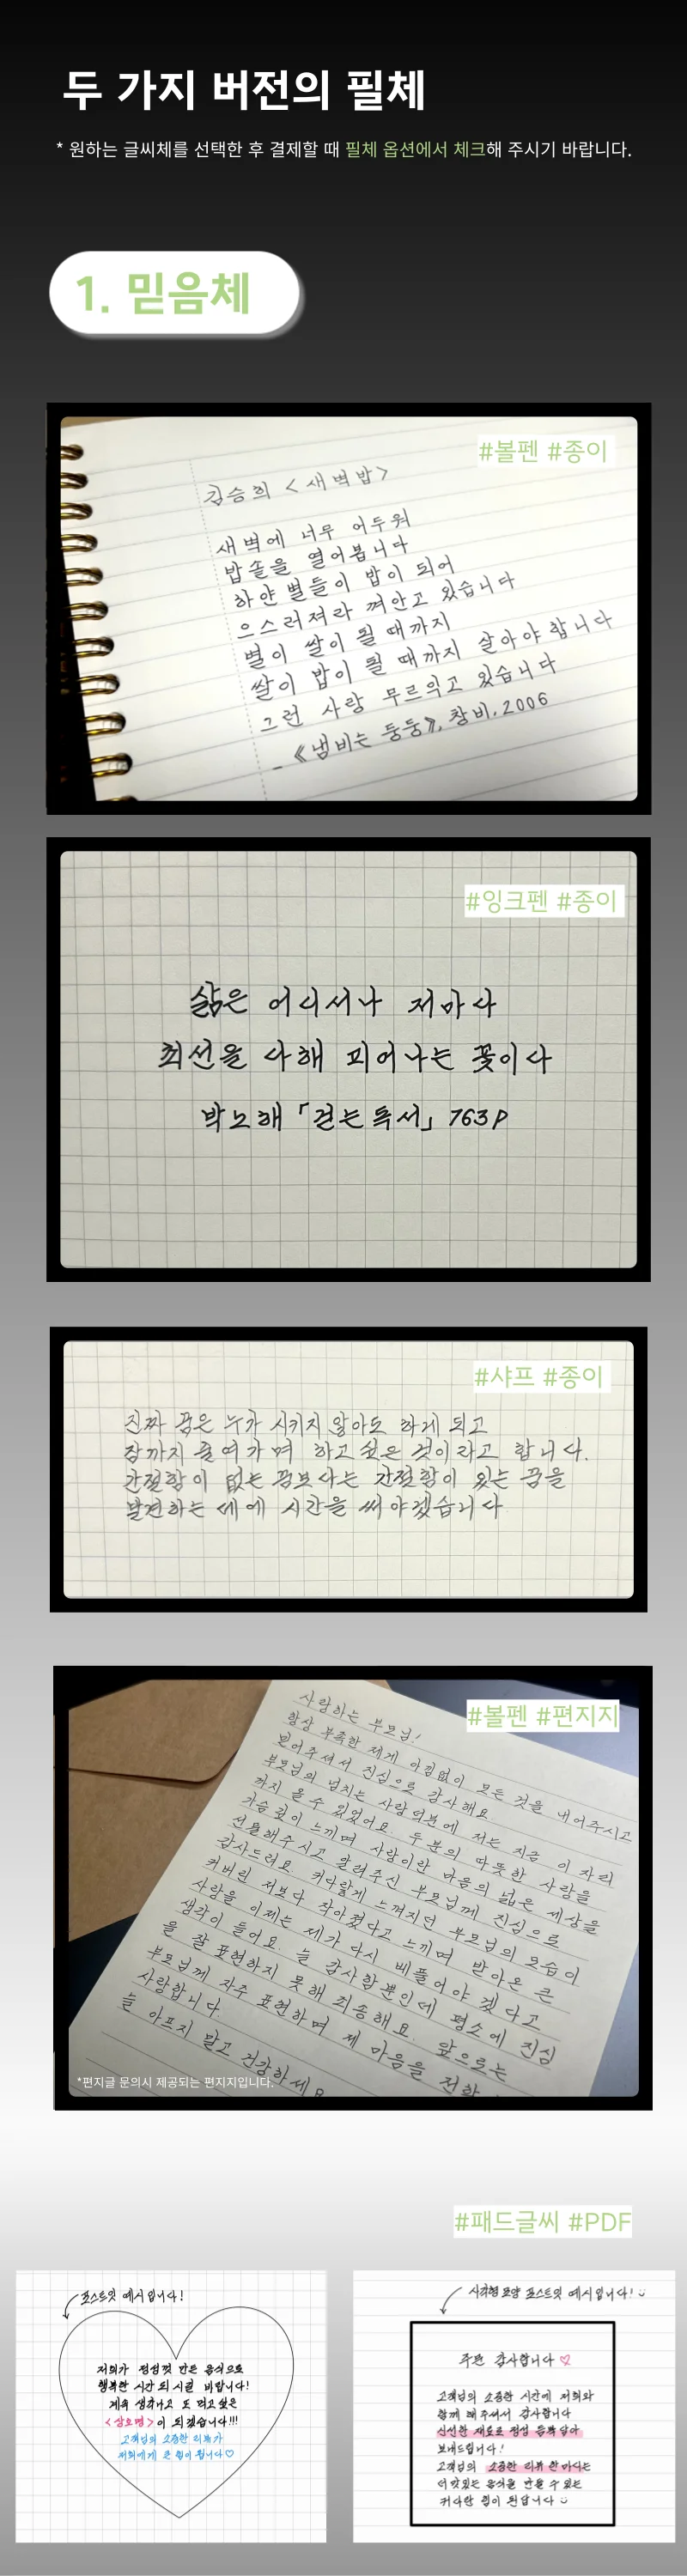 두 가지 버전의 필체
* 원하는 글씨체를 선택한 후 결제할 때 필체 옵션에서 체크해 주시기 바랍니다.
1. 믿음체
#볼펜 #종이
김승희 <새벽밥>
새벽에 너무 어두워
밥솥을 열어봅니다
하얀 별들이 밥이 되어
으스러져라 껴안고 있습니다
별이 쌀이 될 때까지
쌀이 밥이 될 때까지 살아야 합니다
그런 사랑 무르익고 있습니다
_ 《냄비는 둥둥》, 창비, 2006
#잉크펜 #종이
삶은 어디서나 저마다
최선을 다해 피어나는 꽃이다
박노해 「걷는 독서」 763p
#샤프 #종이
진짜 꿈은 누가 시키지 않아도 하게 되고
잠까지 줄여가며 하고 싶은 것이라고 합니다.
간절함이 없는 꿈보다는 간절함이 있는 꿈을
발견하는 데에 시간을 써야겠습니다
#볼펜 #편지지
사랑하는 부모님!
항상 부족한 제게 아낌없이 모든 것을 내어주시고
믿어주셔서 진심으로 감사해요
부모님의 넘치는 사랑 덕분에 저는 지금 이 자리
까지 올 수 있었어요. 두 분의 따뜻한 사랑을
가슴 깊이 느끼며 사랑이란 마음의 넓은 세상을
선물해주시고 알려주신 부모님께 진심으로
감사드려요. 커다랗게 느껴지던 부모님의 모습이
커버린 저보다 작아졌다고 느끼며 받아온 큰
사랑을 이제는 제가 다시 베풀어야 겠다고
생각이 들어요. 늘 감사할뿐인데 평소에 진심
을 잘 표현하지 못해 죄송해요. 앞으로는
부모님께 자주 표현하며 제 마음을 전할
사랑합니다.
늘 아프지 말고 건강하세요
*편지글 문의시 제공되는 편지지입니다.
#패드글씨 #PDF
포스트잇 예시입니다!
저희가 정성껏 만든 음식으로
행복한 시간 되시길 바랍니다!
계속 생각나고 또 먹고 싶은
<상호명>이 되겠습니다!!!
고객님의 소중한 리뷰가
저희에게 큰 힘이 됩니다♡
사각형 모양 포스트잇 예시입니다!
주문 감사합니다 ♡
고객님의 소중한 시간에 저희와
함께 해주셔서 감사합니다
신선한 재료로 정성 듬뿍 담아
보내드립니다!
고객님의 소중한 리뷰 한 마디는
더 맛있는 음식을 만들 수 있는
커다란 힘이 된답니다